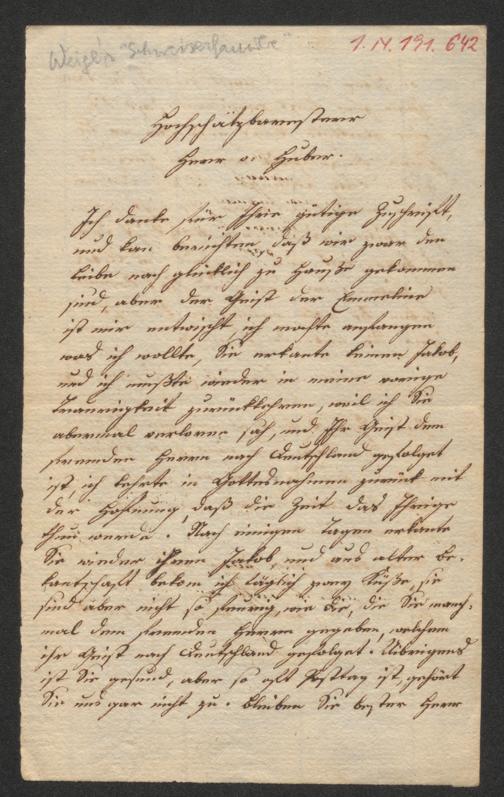 Weigl's "Schweizerfamilie"
1. IV. 191. 642
Hochschätzbarester
Herr v. Huber.
Ich danke für Ihre gütige Zuschrift,
und kan berichten, daß wir zwar dem
Leibe nach glücklich zu Hauße gekommen
sind, aber der Geist der Emmeline
ist mir entwischt ich mochte anfangen
was ich wollte, Sie erkante keinen Jakob,
und ich mußte wieder in meine vorige
Traurigkeit zurückkehren, weil ich Sie
abermal verloren sah, und Ihr Geist dem
fremden Herrn nach Deutschland gefolget
ist, ich kehrte in Gottesnahmen zurück mit
der Hofnung, daß die Zeit das Ihrige
thun werde. Nach einigen Tagen erkante
Sie wieder ihren Jakob, und aus alter Be-
kantschaft bekom ich täglich Küße, sie
sind aber nicht so feurig, wie die, die Sie manch-
mal dem fremden Herrn gegeben, welchem
ihr Geist nach Deutschland gefolget. Uibrigens
ist Sie gesund, aber so oft Posttag ist, gehört
Sie uns gar nicht zu. Bleiben Sie bester Herr